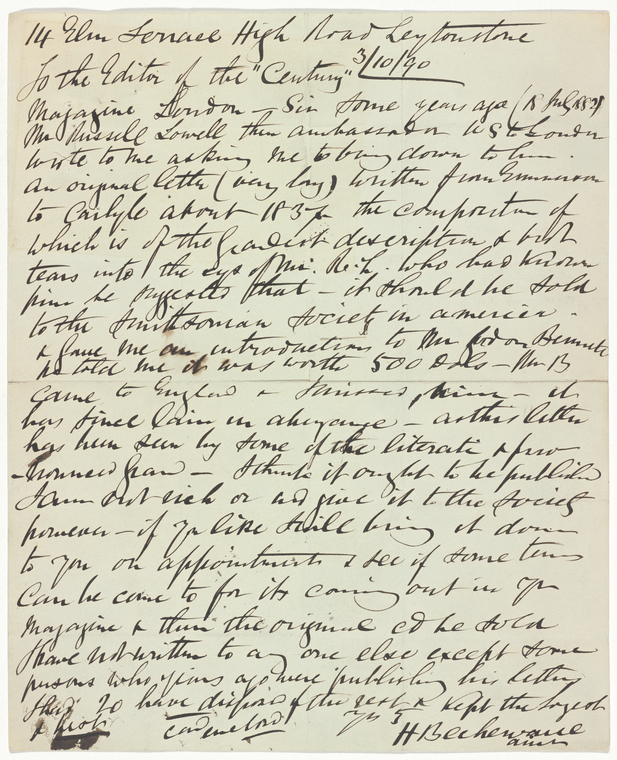 14 Elm Terrace High Road Leytonstone
3/10/90
To the Editor of the "Century"
Magazine London — Sir Some years ago (18 July 1882)
Mr Russell Lowell then ambassador U S to London
wrote to me asking me to bring down to him.
an original letter (very long) written from Emmerson
to Carlyle about 1837 the composition of
which is of the Grandest description & brot
tears into the eyes of Mr. R. L. who had known
he suggested that — it should be sold
to the Smithsonian Society in america.
& gave me an introduction to Mr Gordon Bennett
he told me it was worth 500 Dols — Mr B
came to England & I missed him — it
has since lain in abeyance — as this letter
has been seen by some of the literati & pro
-nounced grand — I think it ought to be published
I am not rich or wd give it to the Society
however — if yu like I will bring it down
to you on appointment & see if some terms
can be come to for its coming out in yr
Magazine & then the original cd be sold
I have not written to any one else except some
persons who years ago were publishing his letters
I had 20 have disposed of the rest & kept the longest
& best card enclosd yrs
H Beehewaise